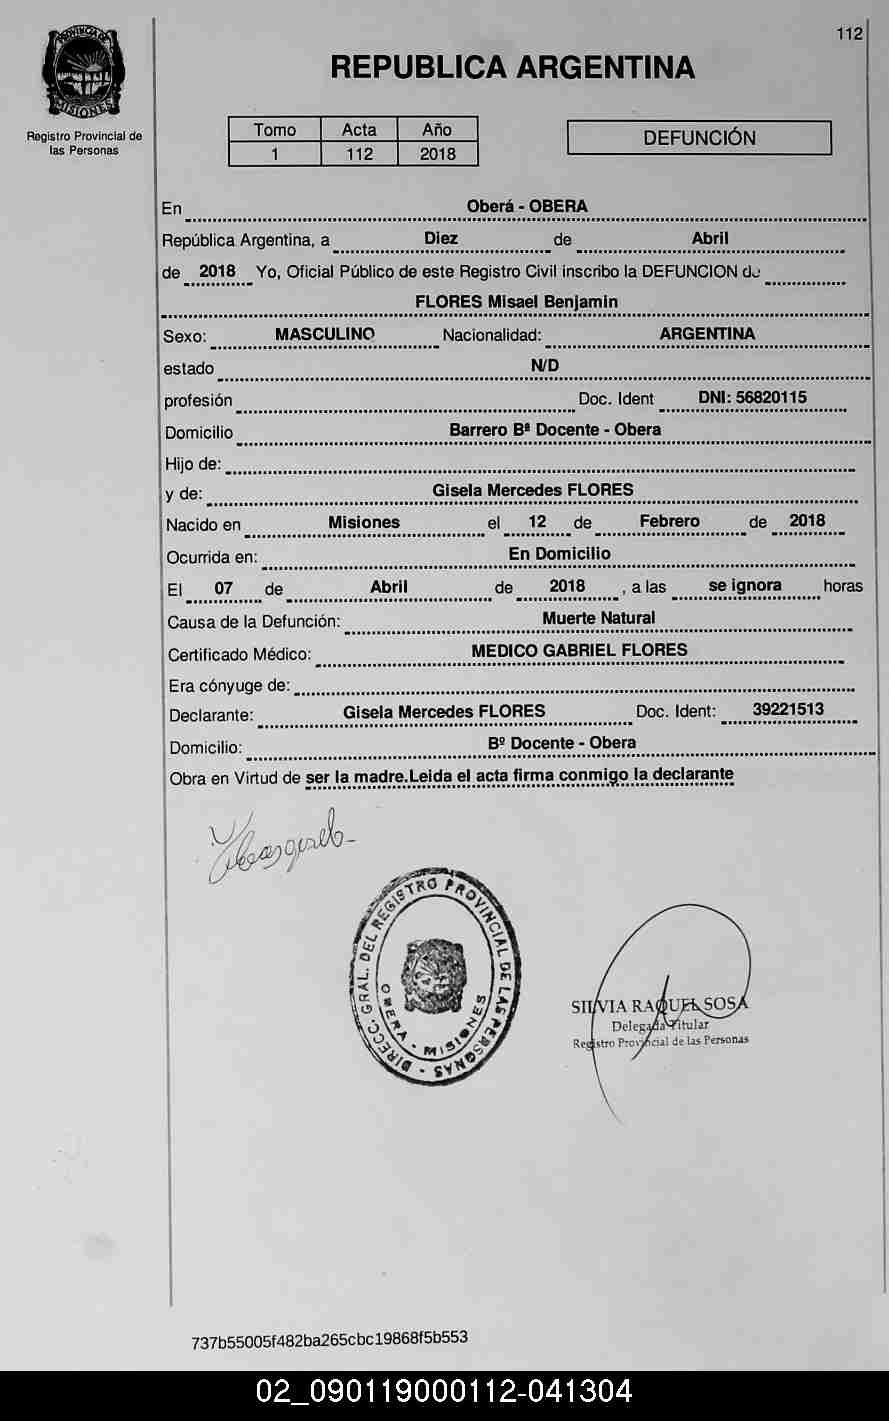 112
PROVINCIA DE
MISIONES
Registro Provincial de
las Personas
REPUBLICA ARGENTINA
Tomo Acta Año
1 112 2018
DEFUNCIÓN
En Oberá - OBERA
República Argentina, a Diez de Abril
de 2018 Yo, Oficial Público de este Registro Civil inscribo la DEFUNCION de
FLORES Misael Benjamin
Sexo: MASCULINO Nacionalidad: ARGENTINA
estado N/D
profesión Doc. Ident DNI: 56820115
Domicilio Barrero Bª Docente - Obera
Hijo de:
y de: Gisela Mercedes FLORES
Nacido en Misiones el 12 de Febrero de 2018
Ocurrida en: En Domicilio
El 07 de Abril de 2018 , a las se ignora horas
Causa de la Defunción: Muerte Natural
Certificado Médico: MEDICO GABRIEL FLORES
Era cónyuge de:
Declarante: Gisela Mercedes FLORES Doc. Ident: 39221513
Domicilio: Bº Docente - Obera
Obra en Virtud de ser la madre.Leida el acta firma conmigo la declarante
DIRECC. GRAL. DEL REGISTRO PROVINCIAL DE LAS PERSONAS
OBERA - MISIONES
SILVIA RAQUEL SOSA
Delegada Titular
Registro Provincial de las Personas
737b55005f482ba265cbc19868f5b553
02_090119000112-041304